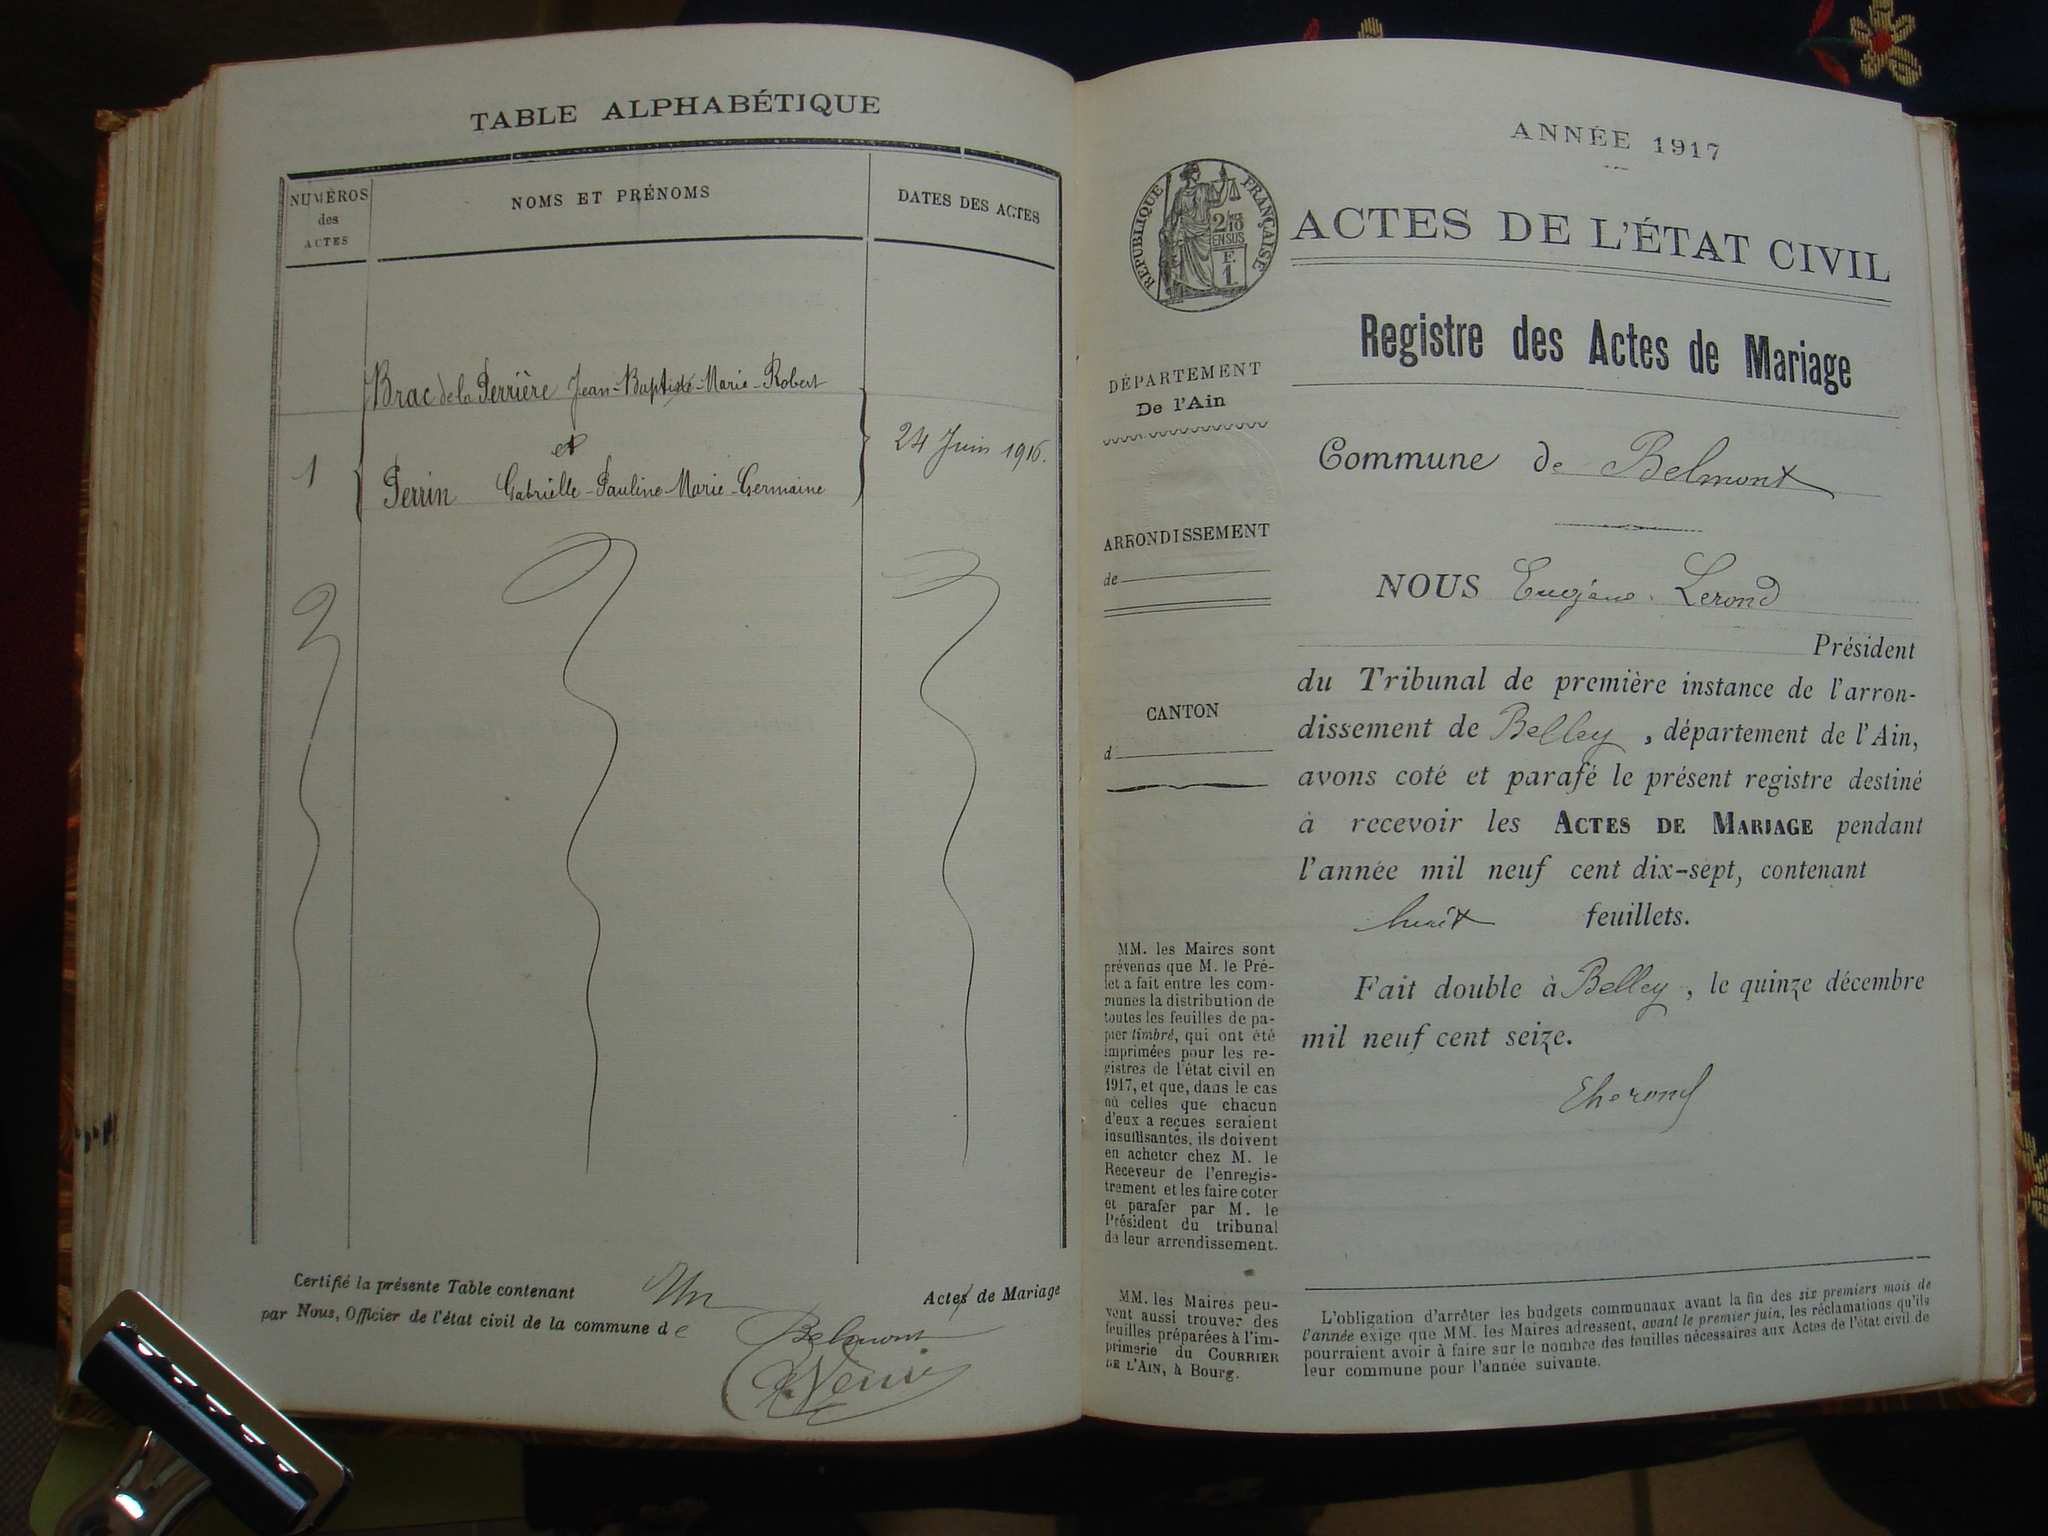 TABLE ALPHABÉTIQUE
NUMÉROS
des
ACTES
NOMS ET PRÉNOMS
DATES DES ACTES
Brac de la Perrière Jean-Baptiste-Marie-Robert
et
1
Perrin Gabrielle-Pauline-Marie-Germaine
24 Juin 1916.
Certifié la présente Table contenant Un Actes de Mariage
par Nous, Officier de l'état civil de la commune de Belmont
ANNÉE 1917
RÉPUBLIQUE FRANÇAISE
2/10
EN SUS
F.
1
ACTES DE L'ÉTAT CIVIL
Registre des Actes de Mariage
DÉPARTEMENT
De l'Ain
ARRONDISSEMENT
de
CANTON
d
MM. les Maires sont
prévenus que M. le Pré-
fet a fait entre les com-
munes la distribution de
toutes les feuilles de pa-
pier timbré, qui ont été
imprimées pour les re-
gistres de l'état civil en
1917, et que, dans le cas
où celles que chacun
d'eux a reçues seraient
insuffisantes, ils doivent
en acheter chez M. le
Receveur de l'enregis-
trement et les faire coter
et parafer par M. le
Président du tribunal
de leur arrondissement.
MM. les Maires peu-
vent aussi trouver des
feuilles préparées à l'im-
primerie du COURRIER
DE L'AIN, à Bourg.
Commune de Belmont
NOUS Eugène Lerond
Président
du Tribunal de première instance de l'arron-
dissement de Belley, département de l'Ain,
avons coté et parafé le présent registre destiné
à recevoir les ACTES DE MARIAGE pendant
l'année mil neuf cent dix-sept, contenant
huit feuillets.
Fait double à Belley, le quinze décembre
mil neuf cent seize.
ELerond
L'obligation d'arrêter les budgets communaux avant la fin des six premiers mois de
l'année exige que MM. les Maires adressent, avant le premier juin, les réclamations qu'ils
pourraient avoir à faire sur le nombre des feuilles nécessaires aux Actes de l'état civil de
leur commune pour l'année suivante.